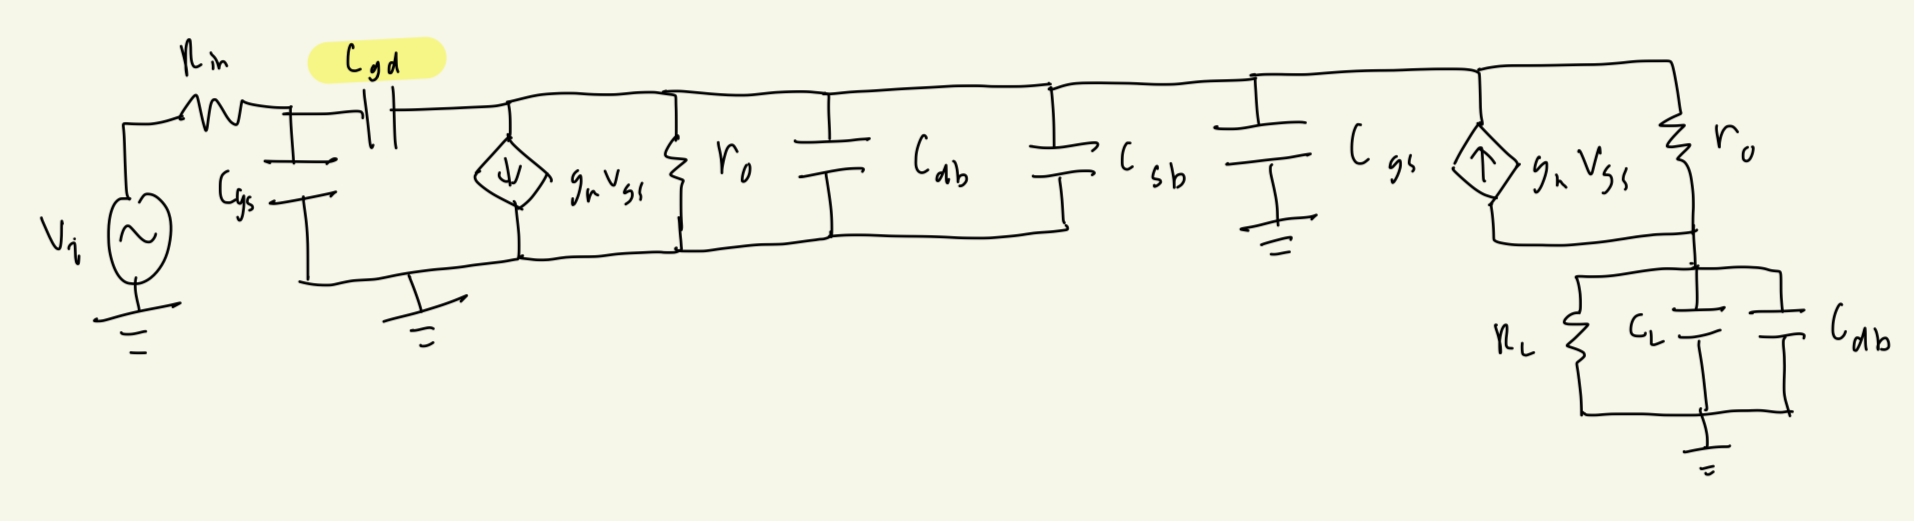 Rin
Cgd
Vi
Cgs
gm Vgs
ro
Cdb
Csb
Cgs
gm Vgs
ro
RL
CL
Cdb